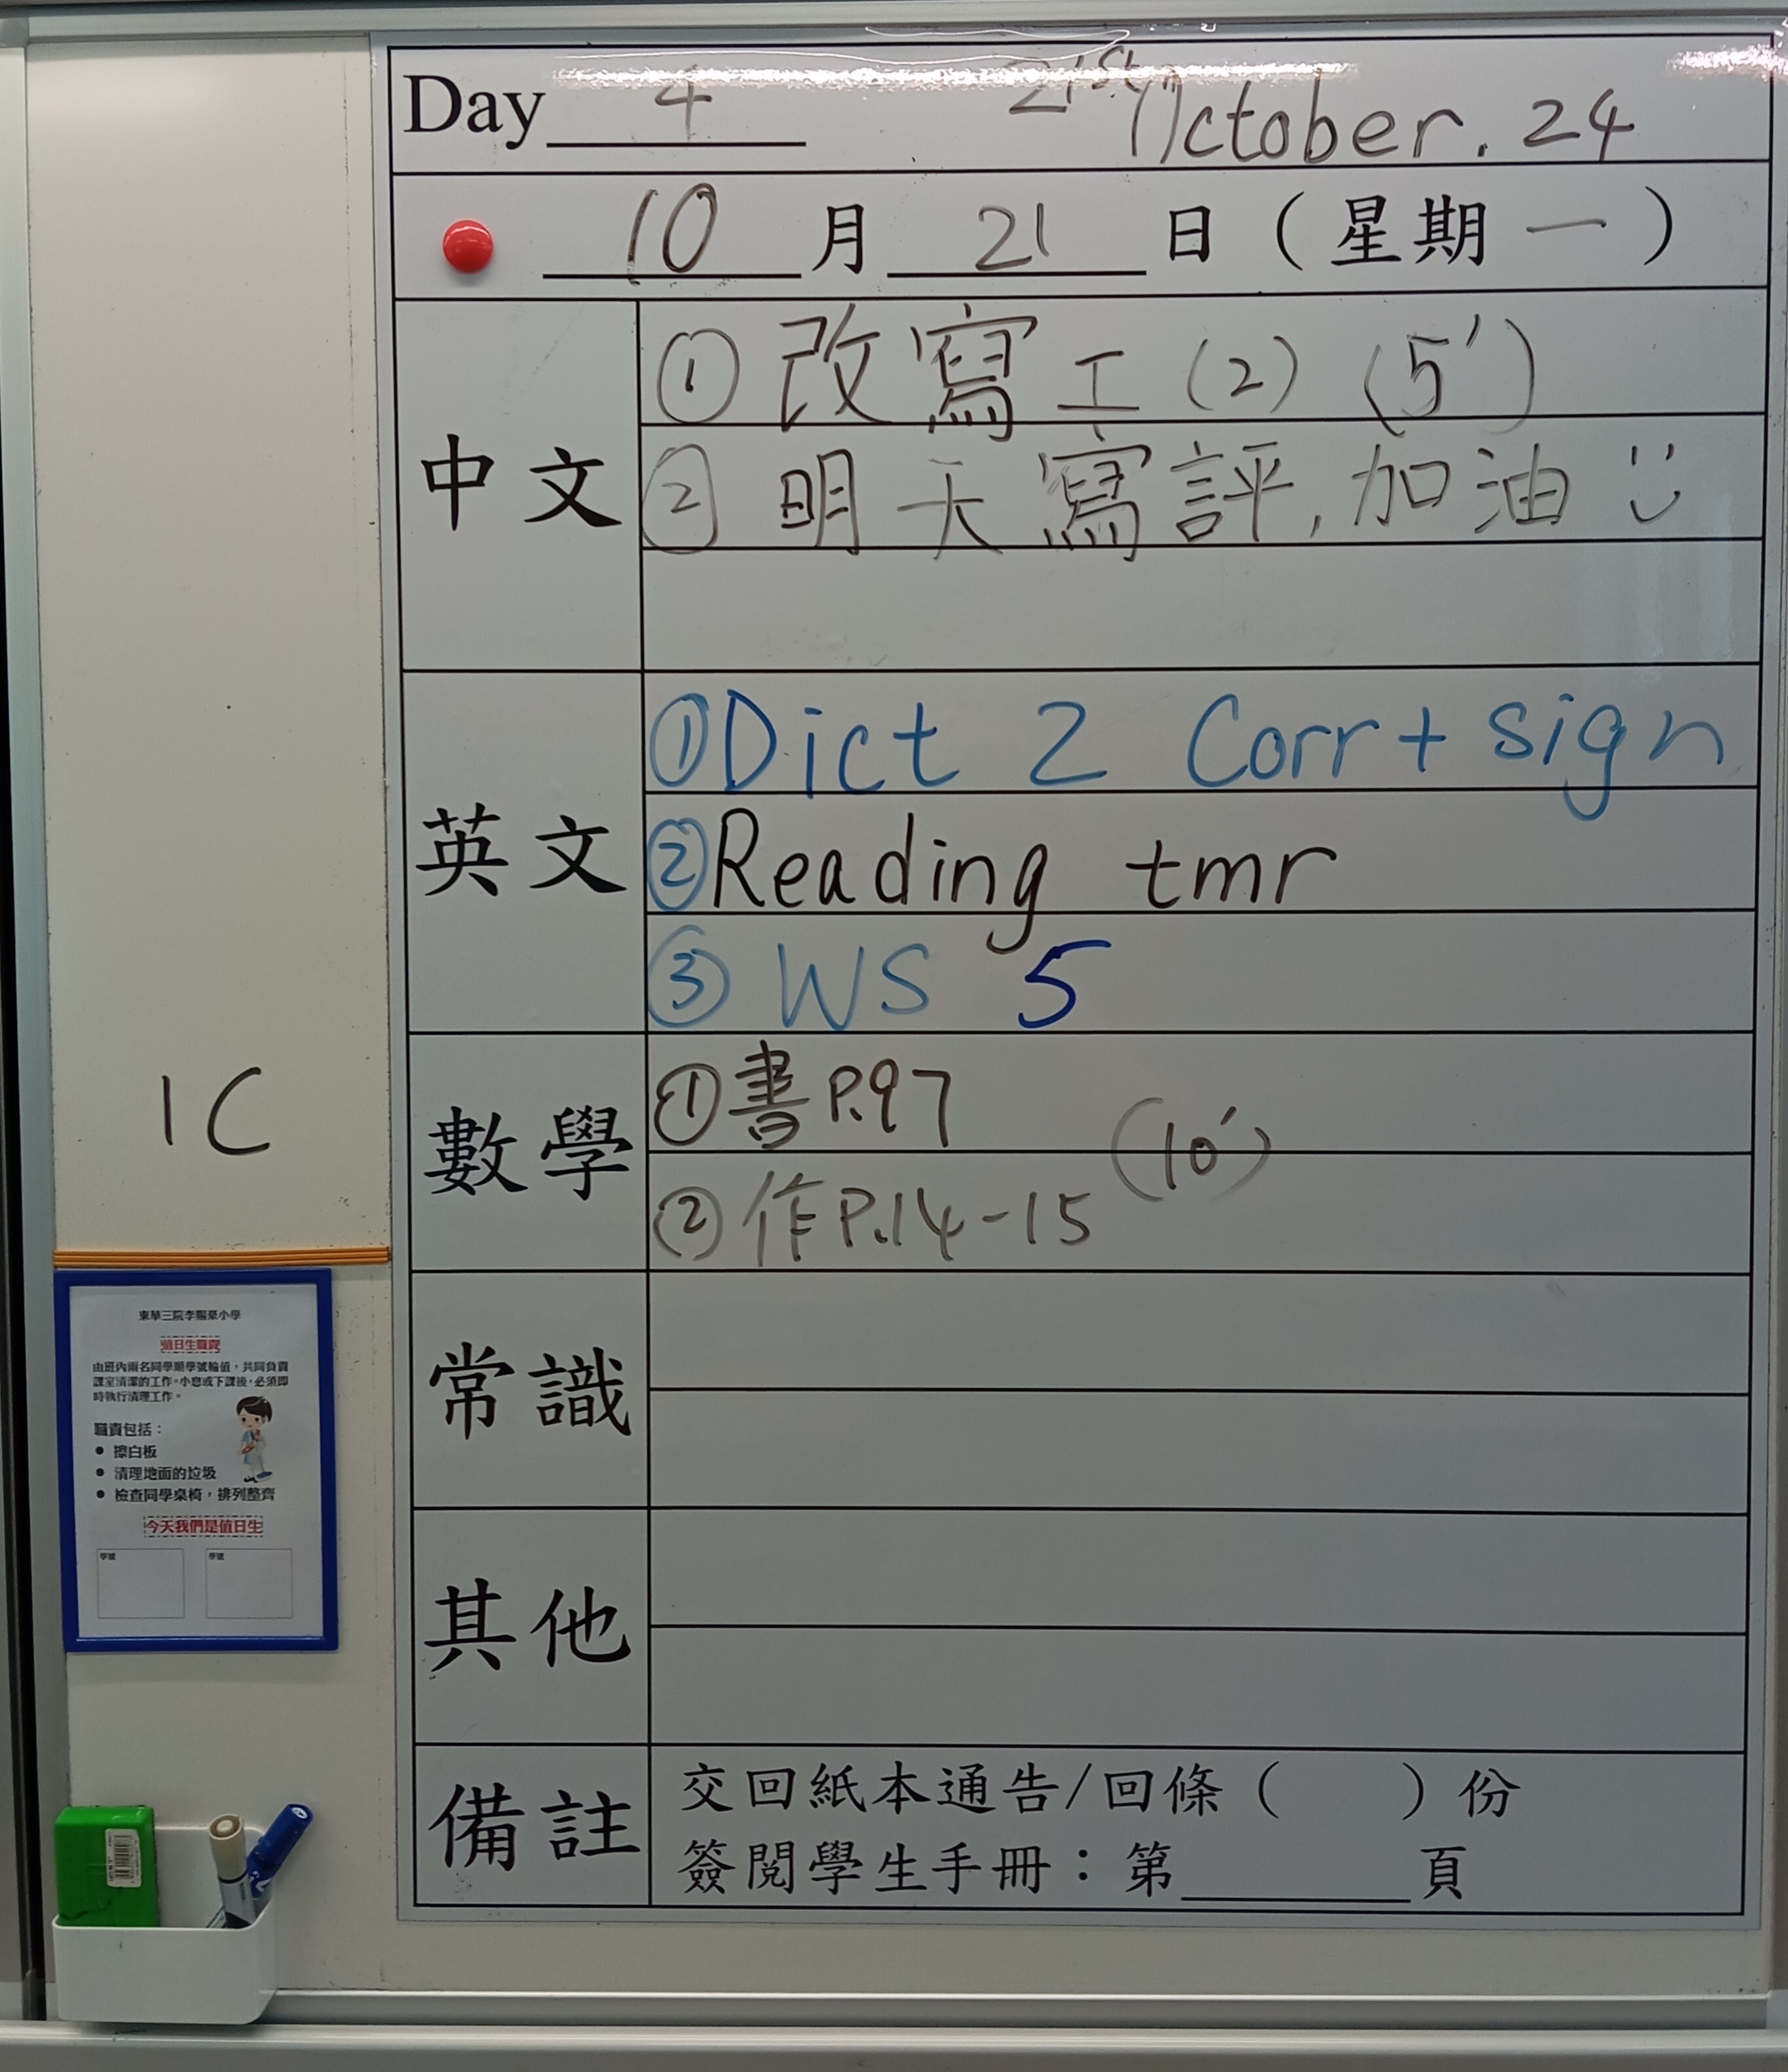 Day 4 21st October. 24
10 月 21 日 ( 星期 一 )
中文
① 改寫工(2) (5')
② 明天寫評, 加油
英文
① Dict 2 Corr + sign
② Reading tmr
③ WS 5
數學
① 書 P.97
(10')
② 作 P.14-15
常識
其他
備註
交回紙本通告/回條 ( ) 份
簽閱學生手冊：第______頁
1C
東華三院李賜豪小學
值日生職責
由班內兩名同學順學號輪值，共同負責
課室清潔的工作。小息或下課後，必須即
時執行清理工作。
職責包括：
● 擦白板
● 清理地面的垃圾
● 檢查同學桌椅，排列整齊
今天我們是值日生
學號 學號